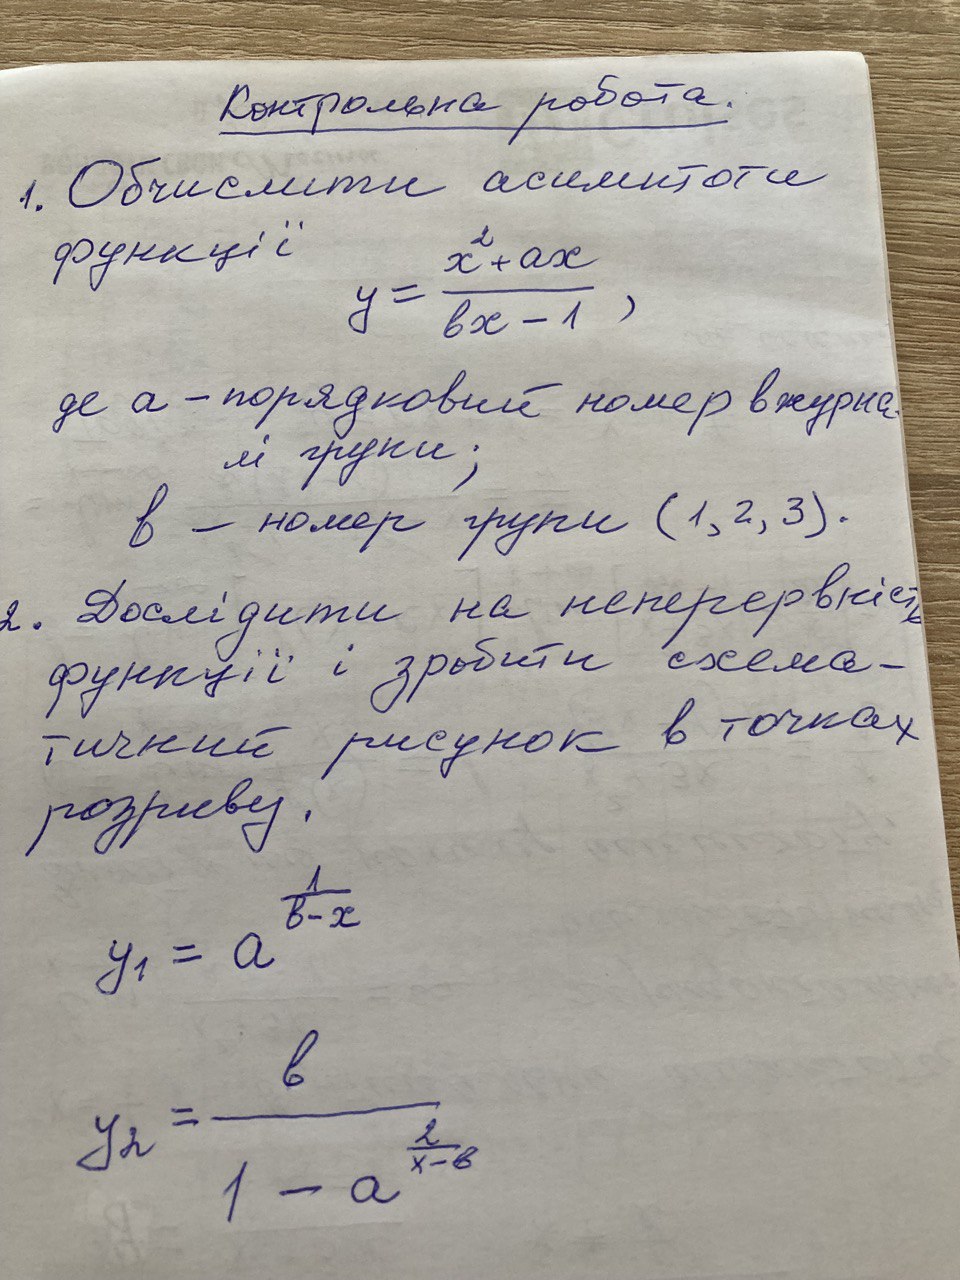 Контрольна робота.
1. Обчислити асимптоти
функції
y = (x² + ax)/(вx − 1),
де а – порядковий номер в журна-
лі групи;
в – номер групи (1, 2, 3).
2. Дослідити на неперервність
функції і зробити схема-
тичний рисунок в точках
розриву.
y₁ = a^(1/(в−x))
y₂ = в/(1 − a^(2/(x−в)))